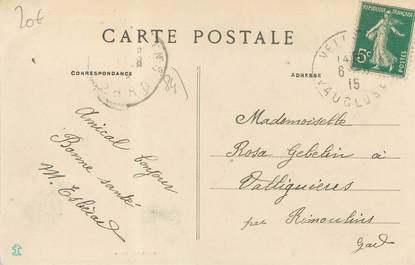 20€
CARTE POSTALE
CORRESPONDANCE
ADRESSE
RÉPUBLIQUE FRANÇAISE
5c
POSTES
VELL
14
6
15
VAUCLUSE
GARD
Amical bonjour
Bonne santé
M.
Mademoiselle
Rosa Gebelin à
Valliguières
par Rémoulins
Gard